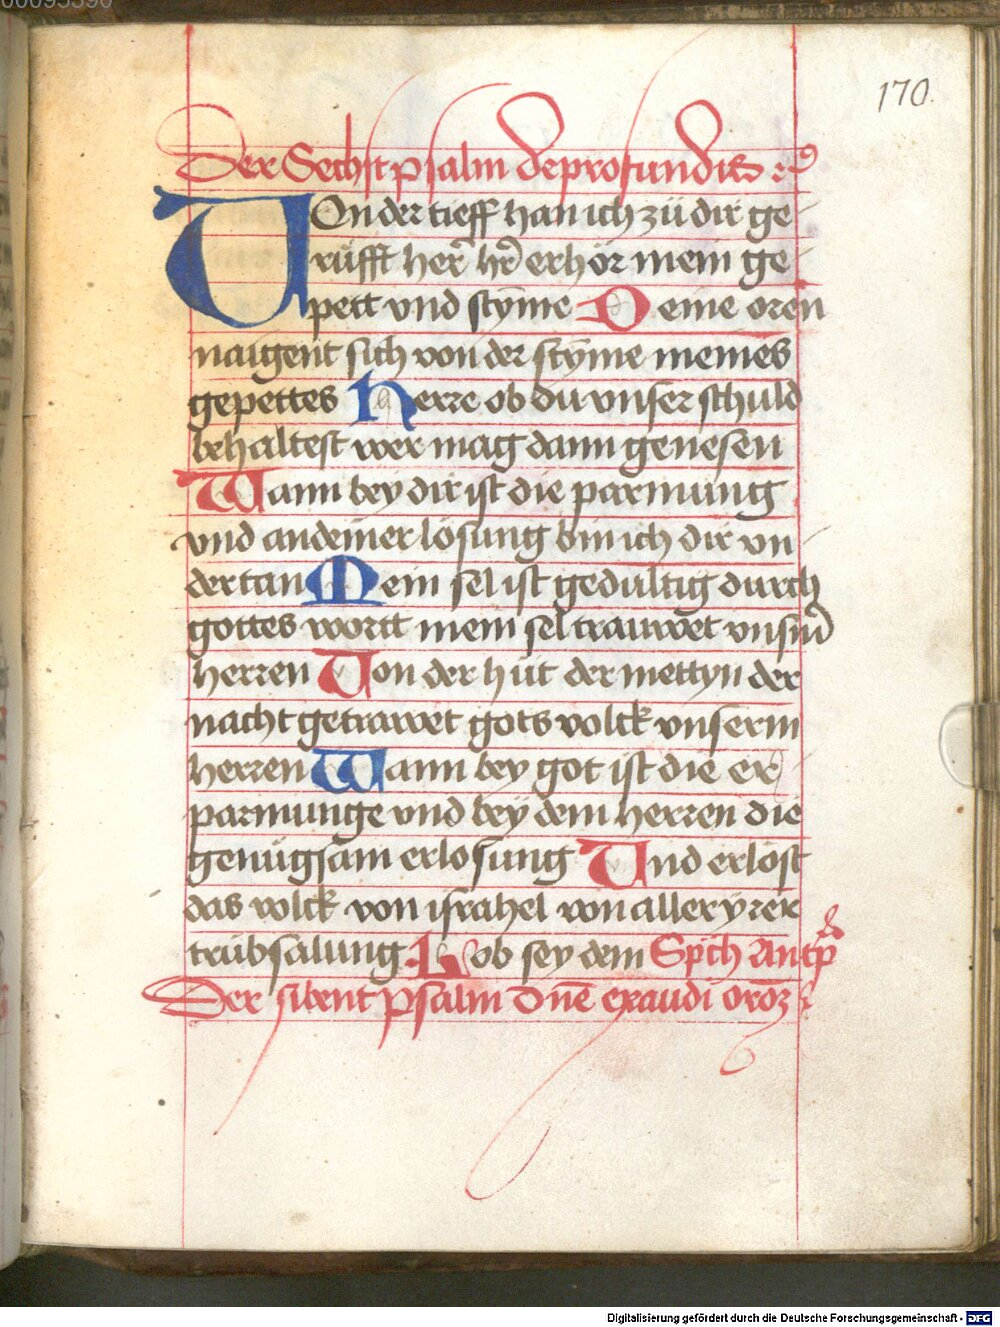 00095390
170.
Der Sechst psalm de profundis ⁊c
Von der tieff han ich zů dir ge-
rüfft her̄ hr̄ erhör mein ge-
pett vnd stȳme Deine oren
naigent sich von der stȳme meines
gepettes Herre ob du vnser schuld
behaltest wer mag dann genesen
Wann bey dir ist die parmung
vnd an deiner lösung bin ich dir vn-
dertan Mein sel ist gedultig durch
gottes wortt mein sel trauwet vnsm̄
herren Von der hůt der mettyn der
nacht getrawet gots volck vnserm
herren Wann bey got ist die er-
parmunge vnd bey dem herren die
genůgsam erlosung Vnd erlöst
das volck von israhel von aller yrer
trübsalung Lob sey dem Sp̄ch Antp̄
Der sibent psalm Dn̄e exaudi oroēz
Digitalisierung gefördert durch die Deutsche Forschungsgemeinschaft - DFG